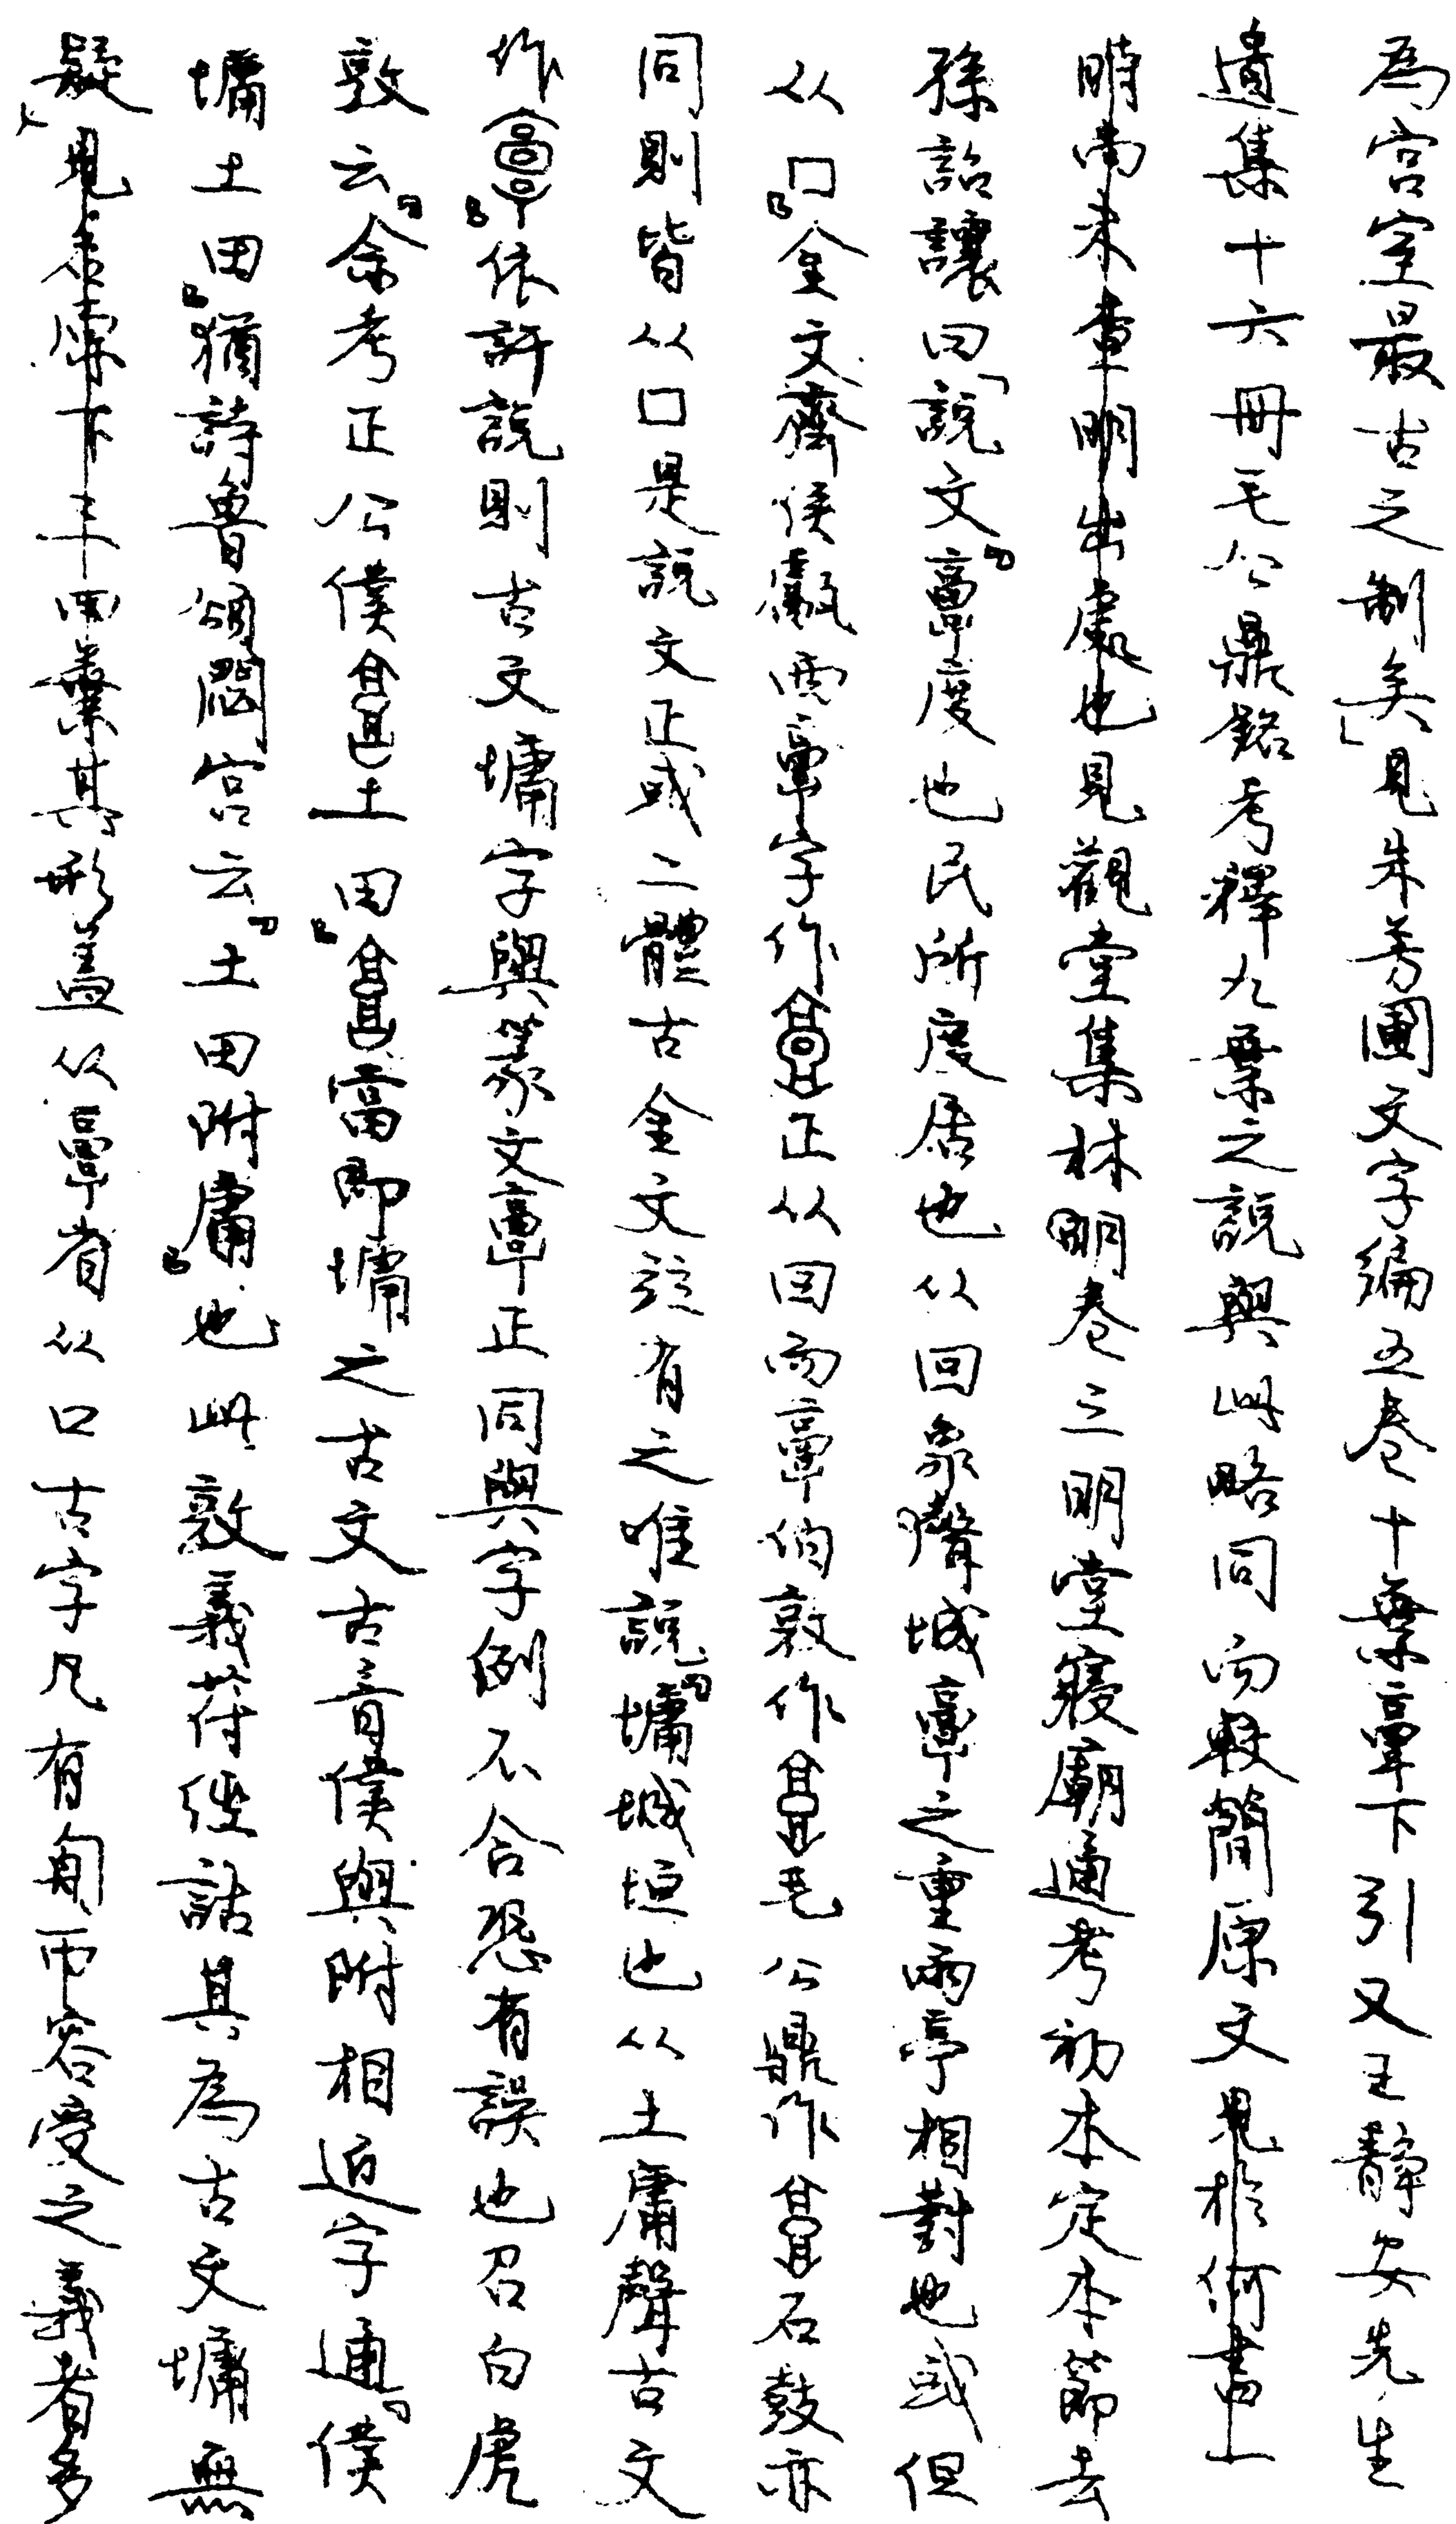 為宮室最古之制矣」見朱芳圃文字編五卷十葉𩫖下引又王靜安先生
遺集十六冊毛公鼎銘考釋九葉之說與此略同而較簡原文見於何書上
時尚未查明出處也見觀堂集林卷三明堂寢廟通考初本定本節去
孫詒讓曰「說文『𩫖度也民所度居也从回象城𩫖之重兩亭相對也或但
从囗』金文齊侯甗兩𩫖字作正从回而𩫖伯敦作毛公鼎作石鼓亦
同則皆从囗是說文正或二體古金文竝有之唯說『墉城垣也从土庸聲古文
作』依許說則古文墉字與篆文𩫖正同與字例不合恐有誤也召白虎
敦云『余考正公僕土田』當即墉之古文古音僕與附相近字通『僕
墉土田』猶詩魯頌閟宮云『土田附庸』也此敦義符經詁其為古文墉無
疑」其形蓋从𩫖省从口古字凡有匋而容受之義者多